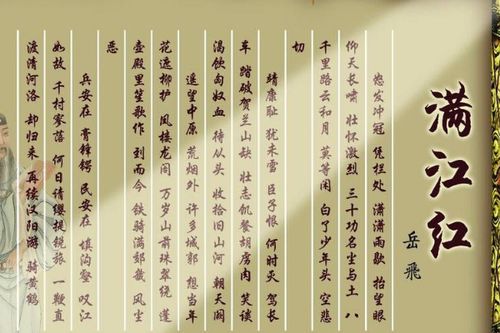 满江红
岳飛
怒发冲冠 凭栏处 潇潇雨歇 抬望眼
仰天长啸 壮怀激烈 三十功名尘与土 八
千里路云和月 莫等闲 白了少年头 空悲
切
靖康耻 犹未雪 臣子恨 何时灭 驾长
车 踏破贺兰山缺 壮志饥餐胡虏肉 笑谈
渴饮匈奴血 待从头 收拾旧山河 朝天阙
遥望中原 荒烟外 许多城郭 想当年
花遮柳护 凤楼龙阁 万岁山前珠翠绕 蓬
壶殿里笙歌作 到而今 铁骑满郊畿 风尘
恶
兵安在 膏锋锷 民安在 填沟壑 叹江
如故 千村寥落 何日请缨提锐旅 一鞭直
渡清河洛 却归来 再续汉阳游 骑黄鹤